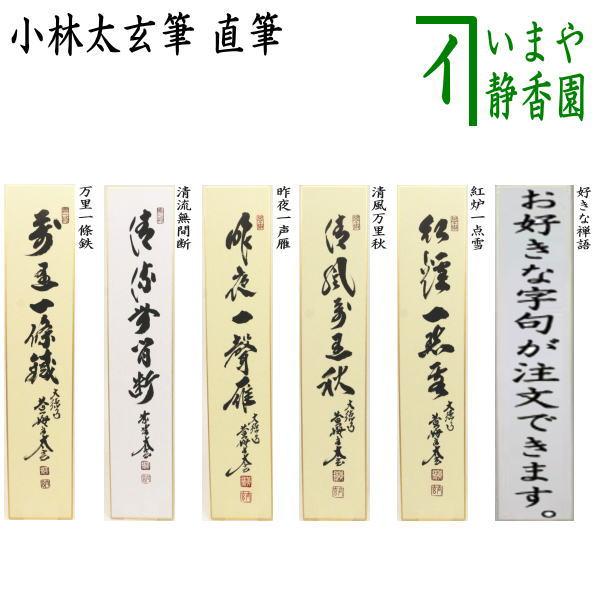 小林太玄筆 直筆
いまや
静香園
万里一條鉄
清流無間断
昨夜一声雁
清風万里秋
紅炉一点雪
好きな禅語
萬里一條鐵
清流無間断
昨夜一聲雁
清風萬里秋
紅爐一点雪
お好きな字句が注文できます。